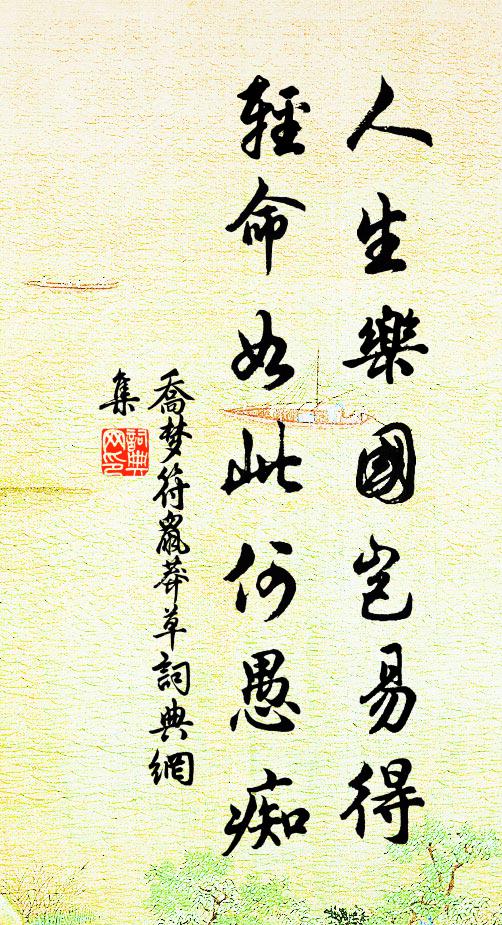 人生樂國岂易得
輕命如此何愚痴
喬梦符鼠莽草詞典網
集
詞典
网印